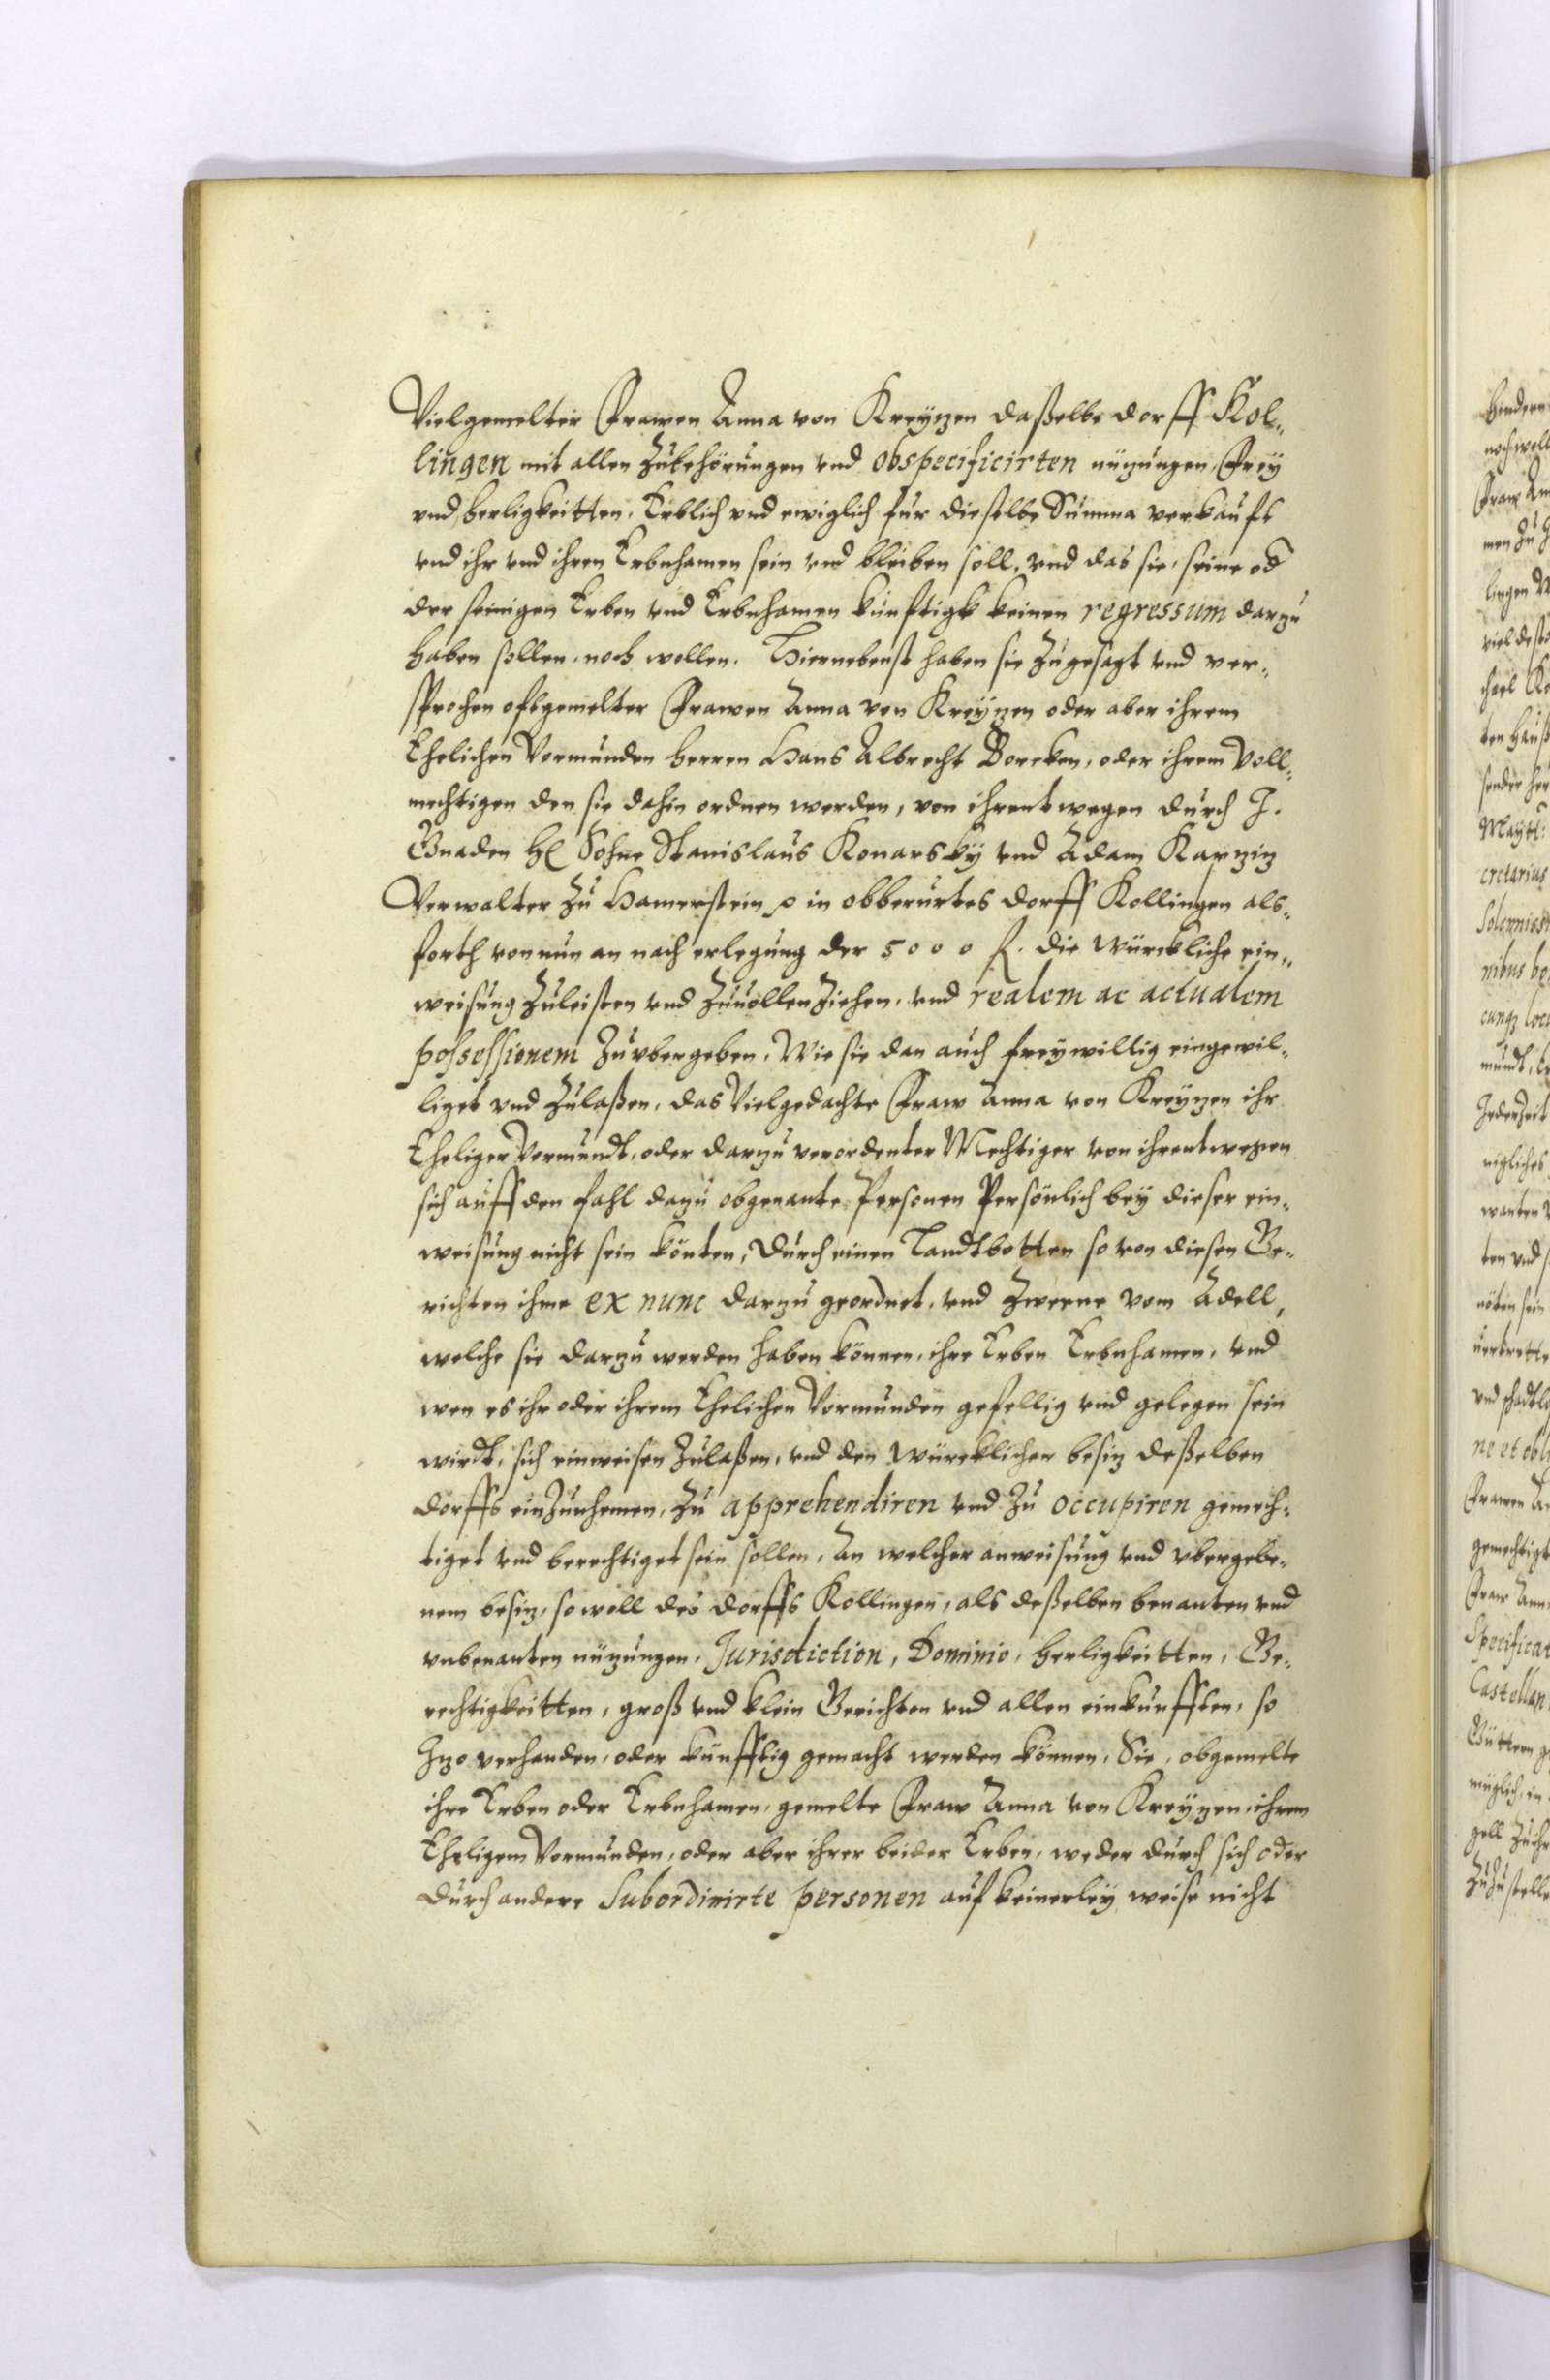 Vielgemelter Frawen Anna von Kreytzen daßelbe dorff Kol-
lingen mit allen Zubehörungen vnd obspecificirten nützungen, Frey
vnd herligkeitten, Erblich vnd ewiglich fur dieselbe Summa verkauft
vnd ihr vnd ihren Erbnhamen sein vnd bleiben soll, vnd das sie, seine od
der seinigen Erben vnd Erbnhamen künftigk keinen regressum darzu
haben sollen noch wollen. Hiernebenst haben sie Zugesagt vnd ver-
sprochen oftgemelter Frawen Anna von Kreytzen oder aber ihrem
Ehelichen Vormunden herren Hans Albrecht Borcken, oder ihrem Voll-
mechtigen den sie dahin ordnen werden, von ihrentwegen durch J.
Gnaden Hl Sohne Stanislaus Konarsky vnd Adam Karzig
Verwalter Zu Hamerstein in obberurtes dorff Kollingen als-
forth von nun an nach erlegung der 5000 f. die Würckliche ein-
weisung Zuleisten vnd Zuuollenziehen, vnd realem ac actualem
possessionem Zuvbergeben, Wie sie dan auch freywillig eingewil-
liget vnd Zulaßen, das Vielgedachte Fraw Anna von Kreytzen ihr
Eheliger Vormundt, oder darzu verordenter Mechtiger von ihrentwegen
sich auff den fahl dazu obgenante Personen Persönlich bey dieser ein-
weisung nicht sein könten, Durch einen Landtbotten so von diesen Ge-
richten ihme ex nunc darzu geordnet, vnd Zweene vom Adell,
welche sie darzu werden haben können, ihre Erben Erbnhamen, vnd
wen es ihr oder ihrem Ehelichen Vormunden gefellig vnd gelegen sein
wirdt, sich einweisen Zulaßen, vnd den Würcklichen besitz deßelben
dorffs einZunehmen, Zu apprehendiren vnd Zu occupiren gemech-
tiget vnd berechtiget sein sollen, An welcher anweisung vnd vbergebe-
nem besitz, so woll des dorffs Kollingen, als deßelben benanten vnd
vnbenanten nützungen, Jurisdiction, Dominio, herligkeitten, Ge-
rechtigkeitten, groß vnd klein Gerichten vnd allen einkunfften, so
Jtzo verhanden, oder künfftig gemacht werden können, Sie, obgemelte
ihre Erben oder Erbnhamen, gemelte Fraw Anna von Kreytzen, ihrem
Eheligem Vormunden, oder aber ihrer beider Erben, weder durch sich oder
durch andere Subordinirte personen auf keinerley weise nicht